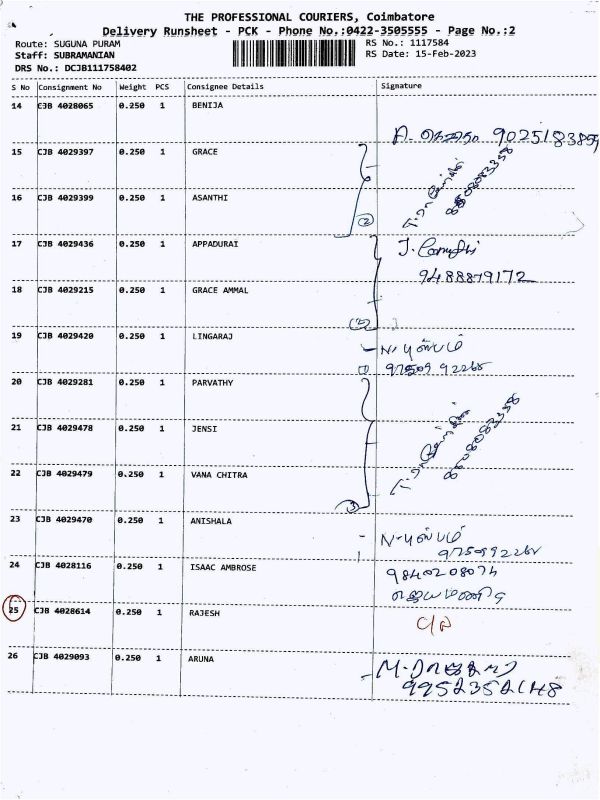 THE PROFESSIONAL COURIERS, Coimbatore
Delivery Runsheet - PCK - Phone No.:0422-3505555 - Page No.:2
Route: SUGUNA PURAM
RS No.: 1117584
Staff: SUBRAMANIAN
RS Date: 15-Feb-2023
DRS No.: DCJB111758402
S No Consignment No Weight PCS Consignee Details Signature
14 CJB 4028065 0.250 1 BENIJA
A.
15 CJB 4029397 0.250 1 GRACE
16 CJB 4029399 0.250 1 ASANTHI
2
17 CJB 4029436 0.250 1 APPADURAI
9488879172
18 CJB 4029215 0.250 1 GRACE AMMAL
2
19 CJB 4029420 0.250 1 LINGARAJ
N. புஸ்பம்
1
20 CJB 4029281 0.250 1 PARVATHY
21 CJB 4029478 0.250 1 JENSI
22 CJB 4029479 0.250 1 VANA CHITRA
3
23 CJB 4029470 0.250 1 ANISHALA
N-புஸ்பம்
24 CJB 4028116 0.250 1 ISAAC AMBROSE
9840208074
ஜெயமணி
25 CJB 4028614 0.250 1 RAJESH
26 CJB 4029093 0.250 1 ARUNA
9952352148